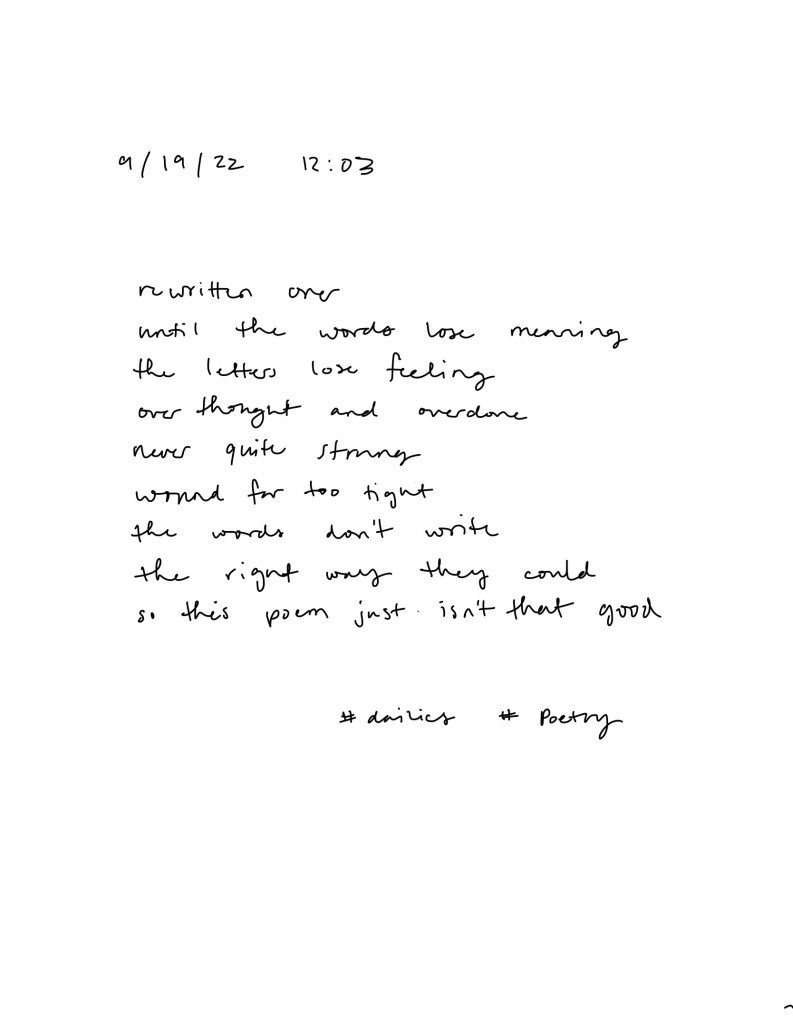 9/19/22 12:03
rewritten over
until the words lose meaning
the letters lose feeling
over thought and overdone
never quite strong
wound far too tight
the words don't write
the right way they could
so this poem just isn't that good
#dairies #Poetry